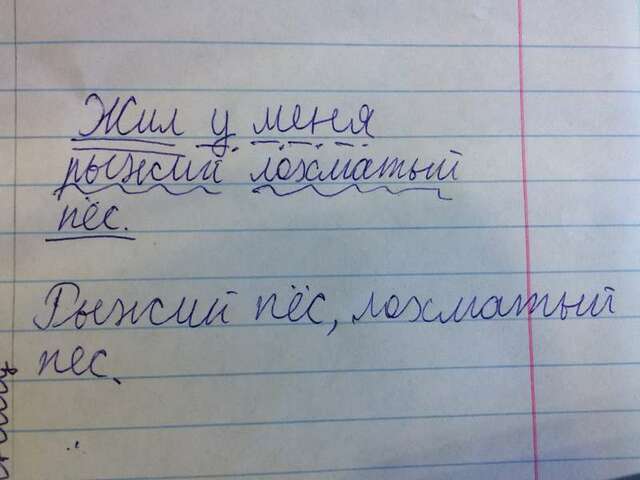 Жил у меня
рыжий лохматый
пёс.
Рыжий пёс, лохматый
пес,